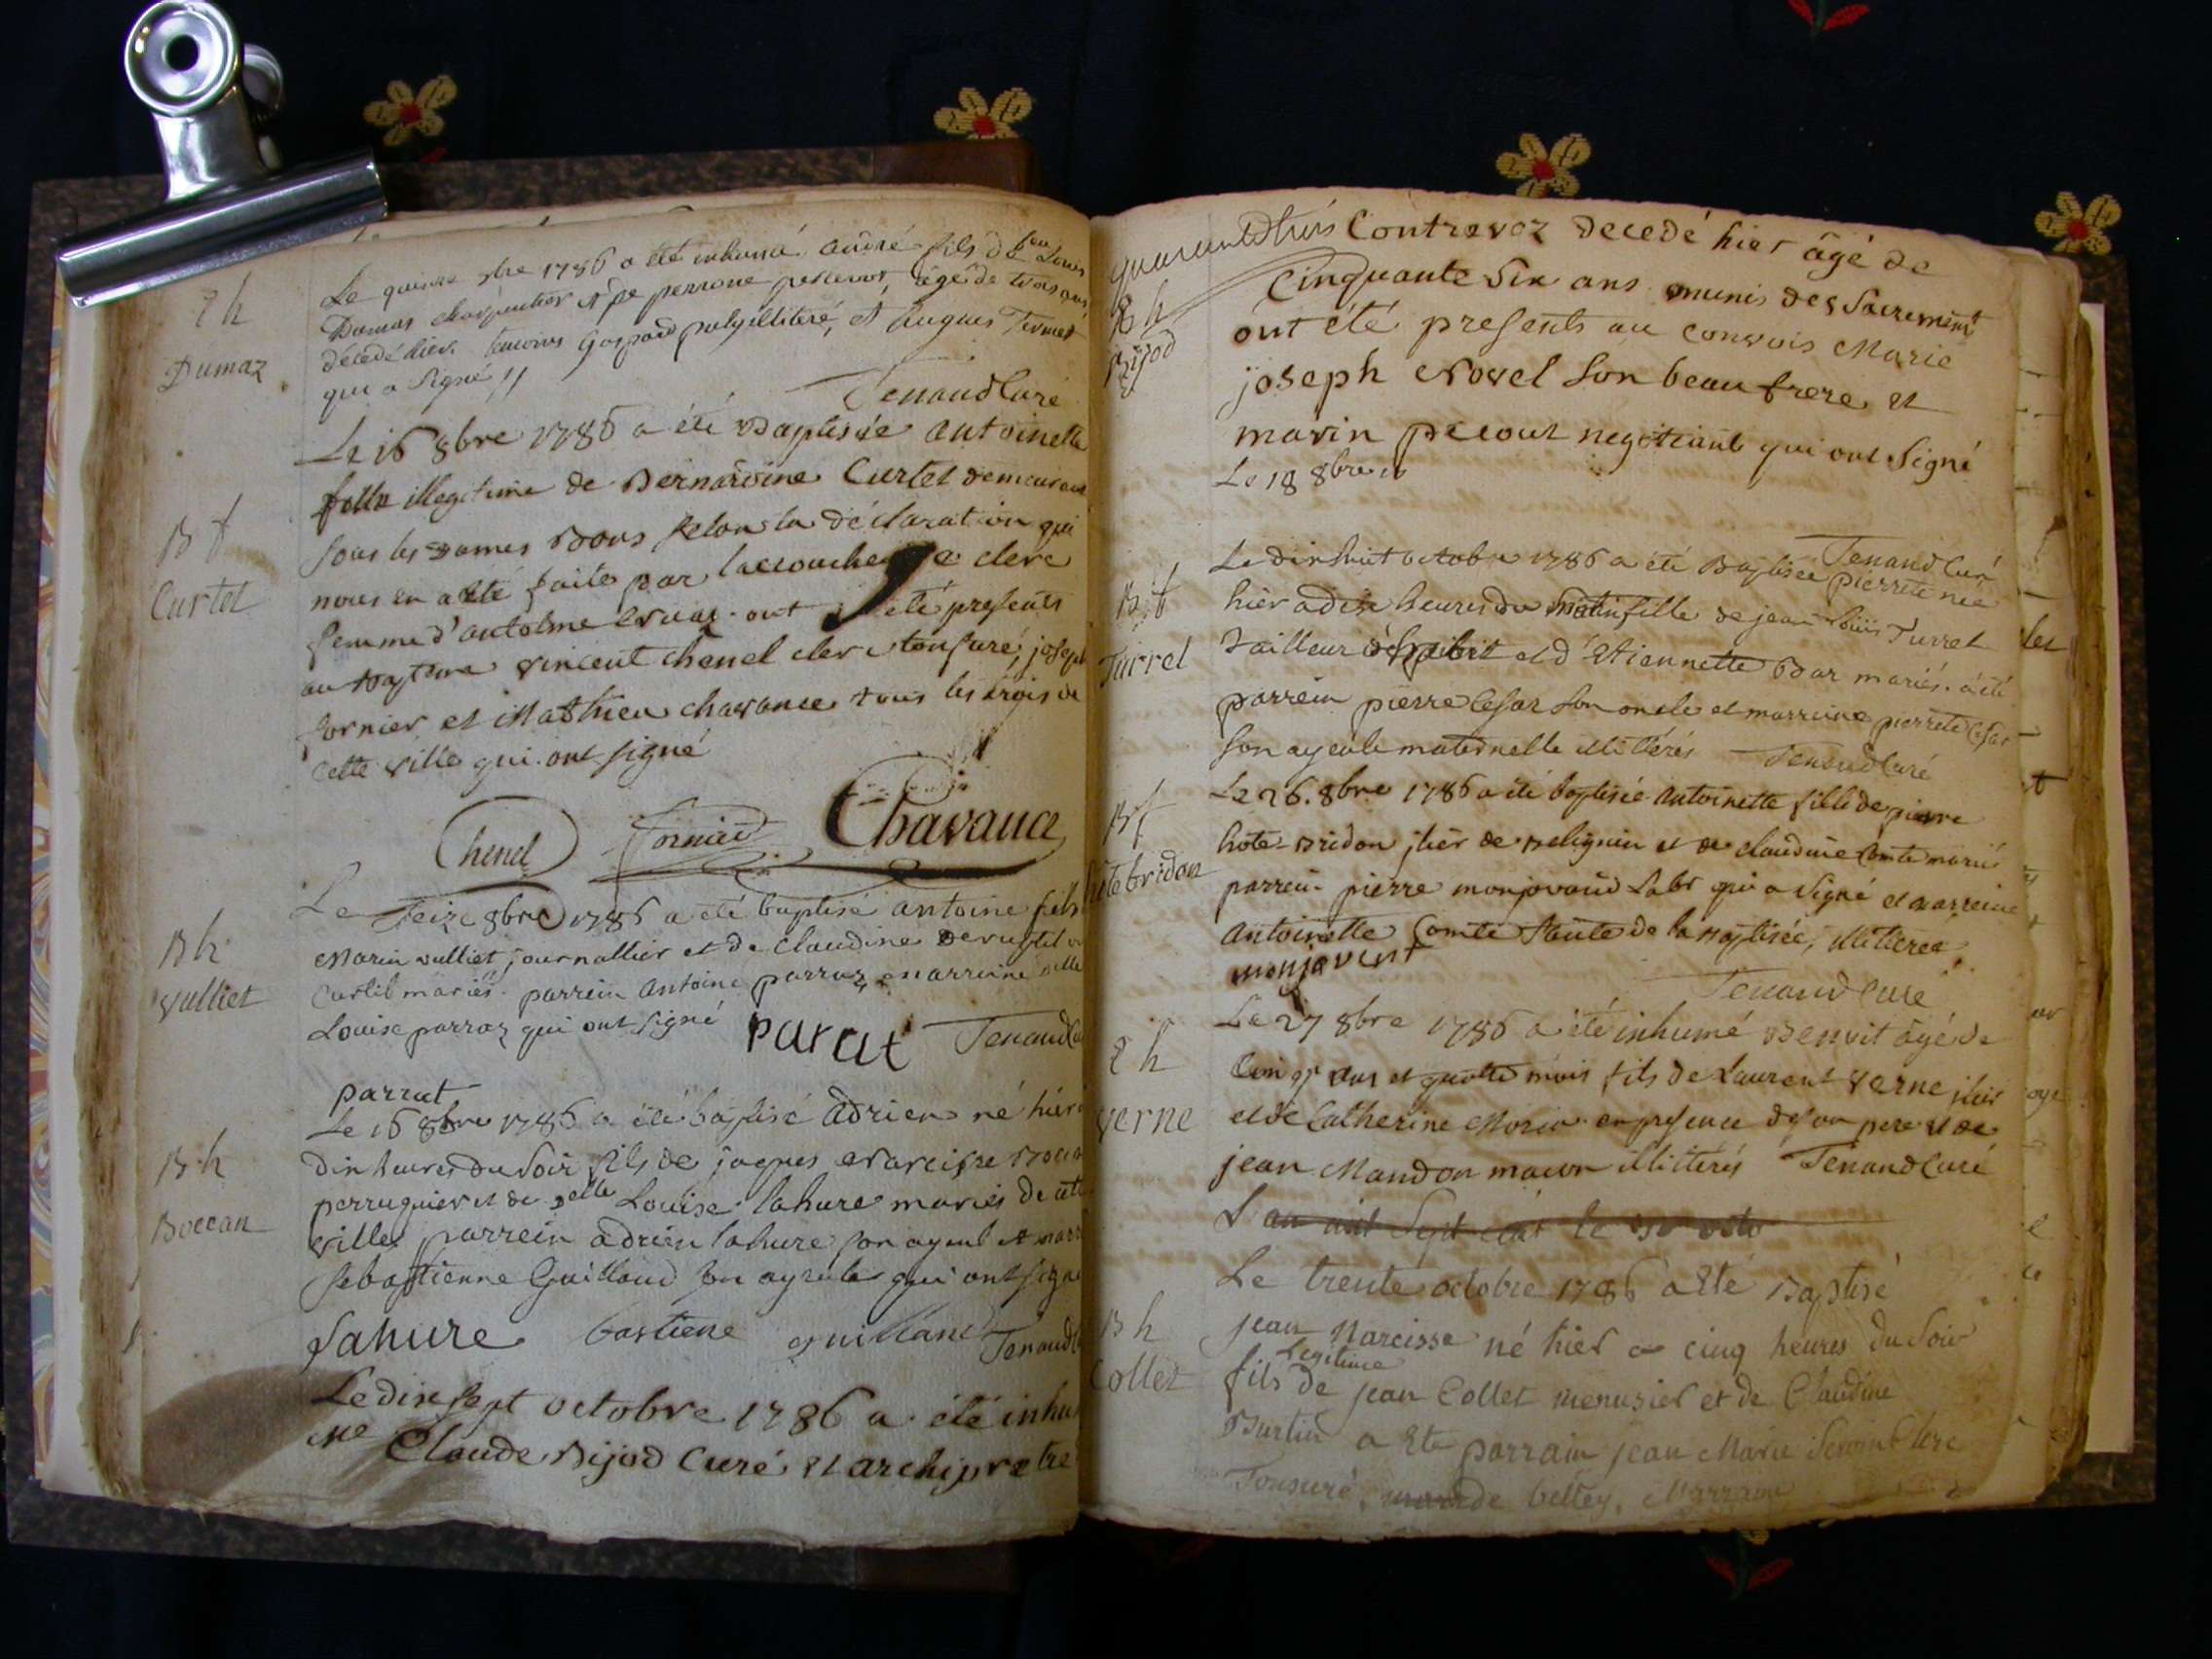 Le quinze 8bre 1786 a été inhumé André fils de feu Louis
Dumas charpentier et de perrone, âgé de trois ans
décédé hier. temoins Gaspard illiteré, et hugues
qui a signé
2 h
Dumaz
Tenand Curé
Le 16 8bre 1786 a été Baptisée antoinette
fille illegitime de Bernardine Curtet demeurant
sous les Dames Bons selon la déclaration qui
nous en a été faite par l'accoucheuse clere
femme d'antelme ont été presents
au Baptême vincent chenel clerc tonsuré, joseph
fornier, et Mathieu chavance tous les trois de
cette ville qui ont signé
B f
Curtet
Chenel Chavance
Le Seize 8bre 1786 a été baptisé antoine fils
Marin vulliet journallier et de Claudine
Curtil mariés. parrein antoine parraz, marreine
Louise parraz qui ont signé parat Tenand
B h
Vulliet
parrat
Le 16 8bre 1786 a été baptisé adrien né hier
dix heures du soir fils de jaques Narcisse
perruquier et de Delle Louise lahure mariés de cette
ville, parrein adrien lahure son ayeul et
sebastienne Guilland son ayeule qui ont signé
B h
Boccan
Lahure bastiene guilland Tenand
Le dix sept octobre 1786 a été
Me Claude Dijod Curé et archiprêtre
quarantetrois
Contrevoz decedé hier âgé de
Cinquante six ans munis des Sacrements
ont été presents au convois Marie
joseph Novel son beau frere et
marin pecout negotiant qui ont signé
Le 18 8bre
Tenand Curé
Le dixhuit octobre 1786 a été Baptisée pierrette née
hier a dix heures du matin fille de jean louis Turret
Tailleur et d'Etiennette mariés. a été
parrein pierre Cesar son oncle et marreine pierrette Cesar
son ayeule maternelle illitérés Tenand Curé
B f
Turrel
Le 26. 8bre 1786 a été baptisée Antoinette fille de pierre
hote-Bridon jlier de Belignin et de claudine Comte mariés
parrein pierre monjovand Labr qui a signé et marreine
Antoinette Comte tante de la Baptisée, illiterée.
B f
hotebridon
monjovent
Tenand Curé
Le 27 8bre 1786 a été inhumé Benoit âgé de
Cinq ans et quatre mois fils de Laurent Verne jlier
et de Catherine Morin en presence de son pere et de
jean Mandon macon illitérés Tenand Curé
2 h
verne
L'an mil Sept cent le
Le trente octobre 1786 a Eté Baptisé
jean Narcisse né hier a cinq heures du Soir
Legitime
fils de jean Collet menusier et de Claudine
Burtin a Ete parrain jean Marie Clerc
Tonsuré, de belley, Marraine
B h
Collet